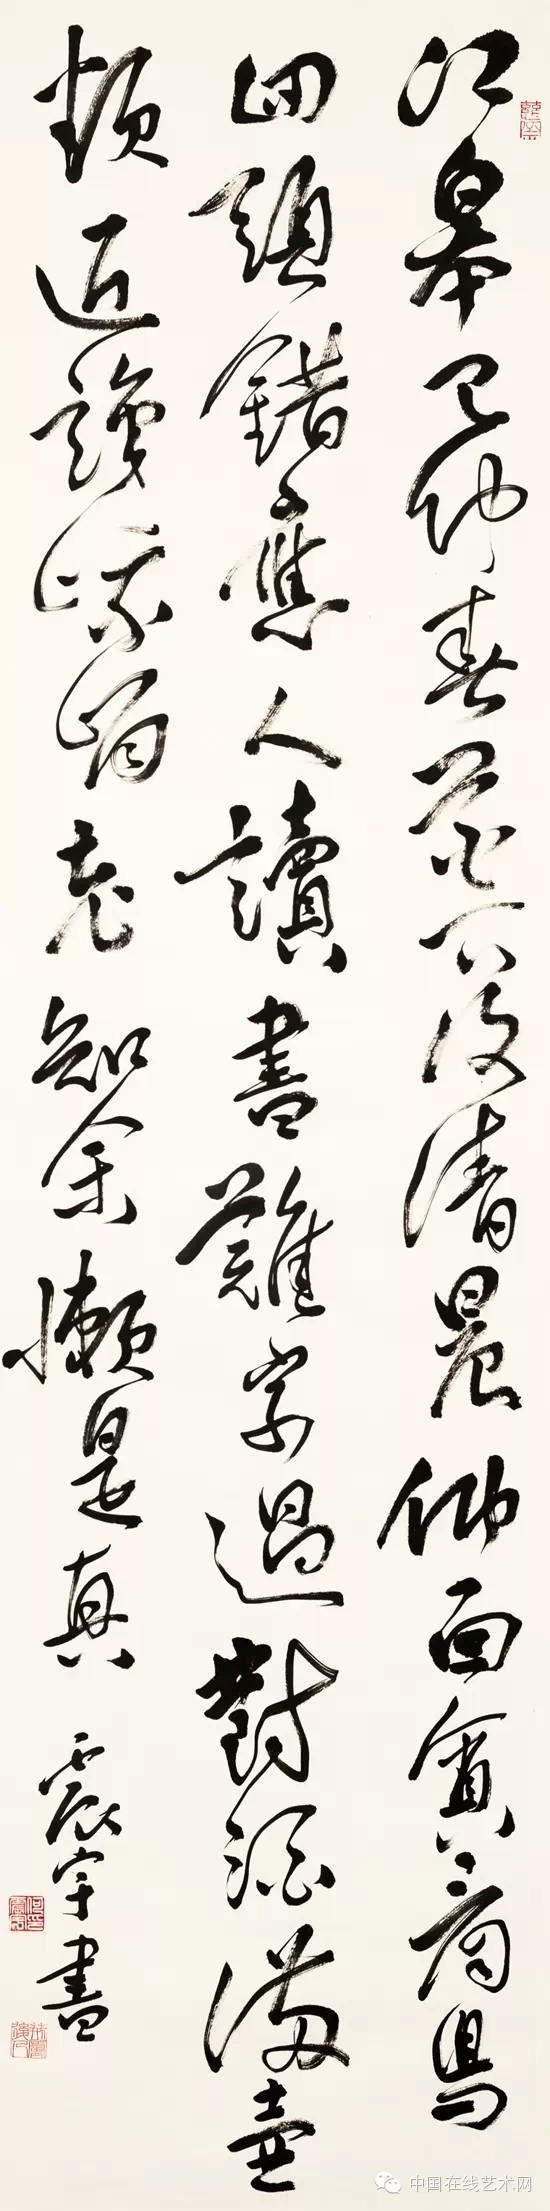 江皋已仲春花下復清晨仰面貪看鳥
回頭錯應人讀書難字過對酒滿壺
頻近識峨嵋老知余懶是真
震宇書
中国在线艺术网